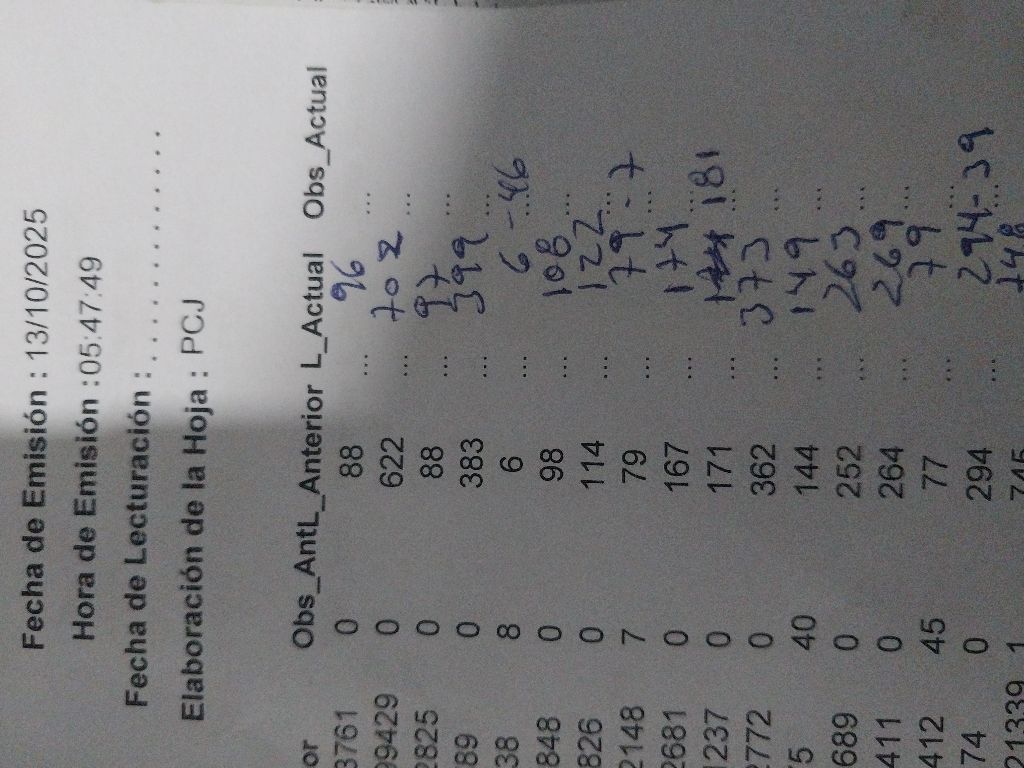 Fecha de Emisión : 13/10/2025
Hora de Emisión :05:47:49
Fecha de Lecturación : . . . . . . . . . . . . . . . .
Elaboración de la Hoja : PCJ
or Obs_AntL_Anterior L_Actual Obs_Actual
3761 0 88 ... 96 ....
99429 0 622 ... 702 ....
2825 0 88 ... 97 ....
89 0 383 ... 399 ....
38 8 6 ... 6 - 46 ....
848 0 98 ... 108 ....
826 0 114 ... 122 ....
2148 7 79 ... 79 - 7 ....
2681 0 167 ... 174 ....
1237 0 171 ... 181 ....
2772 0 362 ... 373 ....
75 40 144 ... 149 ....
689 0 252 ... 263 ....
411 0 264 ... 269 ....
412 45 77 ... 79 ....
74 0 294 ... 294 - 39 ....
21339 1 745 748